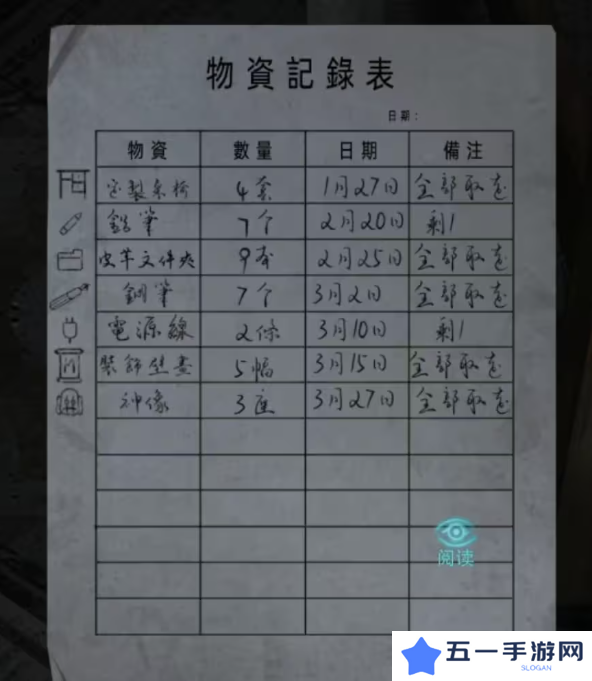 物資記錄表
日期：
物資 數量 日期 備注
定製桌椅 4套 1月27日 全部取走
鉛筆 7个 2月20日 剩1
皮革文件夾 9本 2月25日 全部取走
鋼筆 7个 3月2日 全部取走
電源線 2條 3月10日 剩1
裝飾壁畫 5幅 3月15日 全部取走
神像 3座 3月27日 全部取走
阅读
五一手游网
SLOGAN